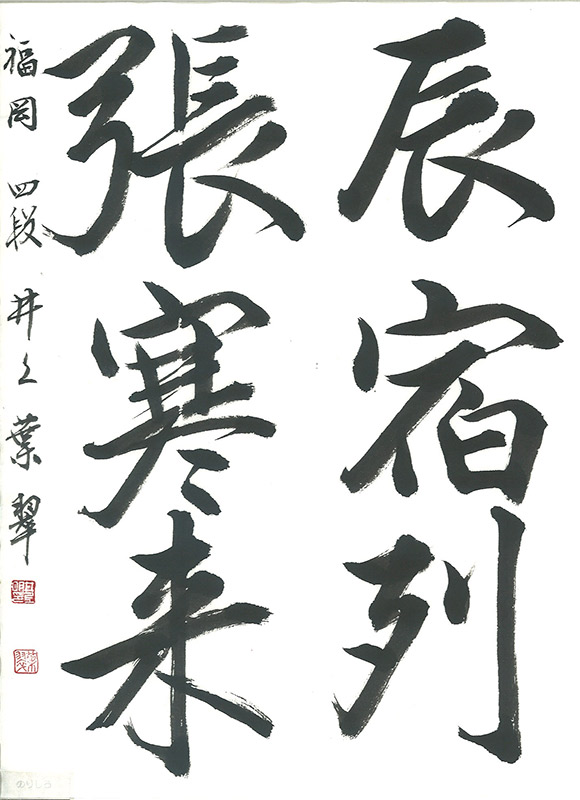 辰宿列
張寒来
福岡 四段 井上葉翠
のりしろ